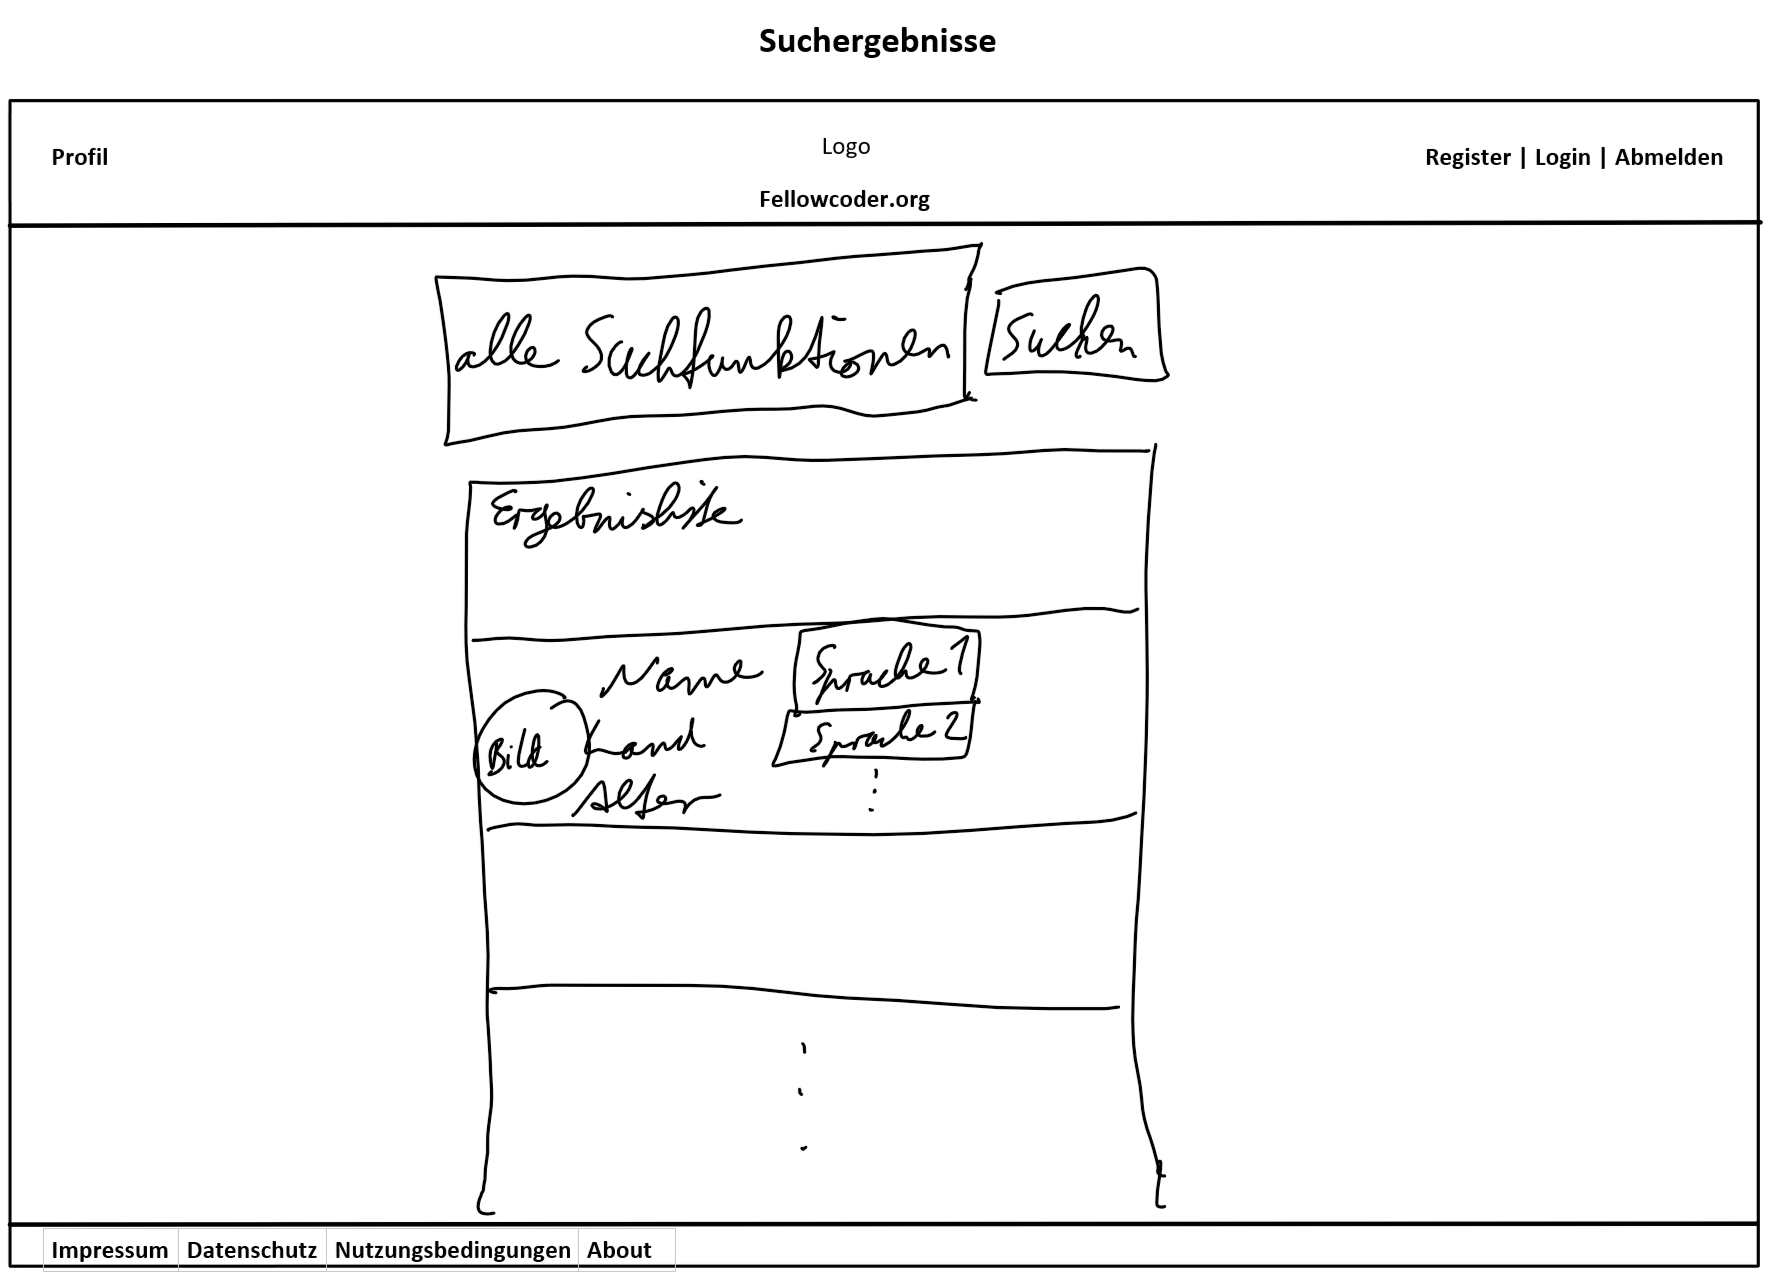 Suchergebnisse
Profil
Logo
Register | Login | Abmelden
Fellowcoder.org
alle Suchfunktionen
Suchen
Ergebnisliste
Name
Sprache 1
Bild
Land
Sprache 2
Alter
Impressum Datenschutz Nutzungsbedingungen About